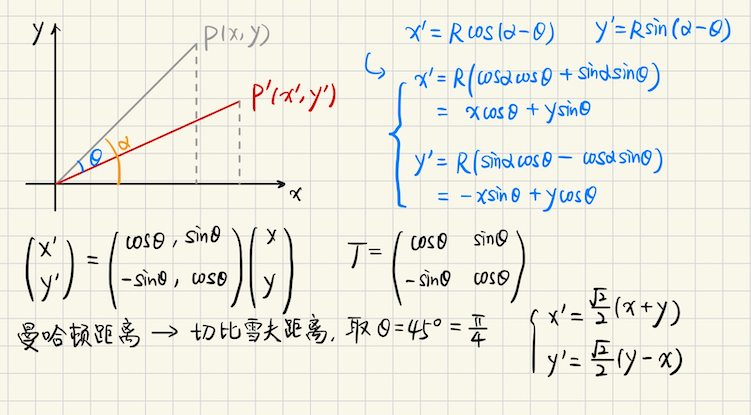 y
P(x, y)
P'(x', y')
θ
α
x
x' = Rcos(α-θ)  y' = Rsin(α-θ)
x' = R(cosαcosθ + sinαsinθ)
= xcosθ + ysinθ
y' = R(sinαcosθ - cosαsinθ)
= -xsinθ + ycosθ
(x' y') = (cosθ, sinθ -sinθ, cosθ)(x y)  T = (cosθ sinθ -sinθ cosθ)
曼哈顿距离 → 切比雪夫距离, 取 θ = 45° = π/4
x' = √2/2 (x+y)
y' = √2/2 (y-x)